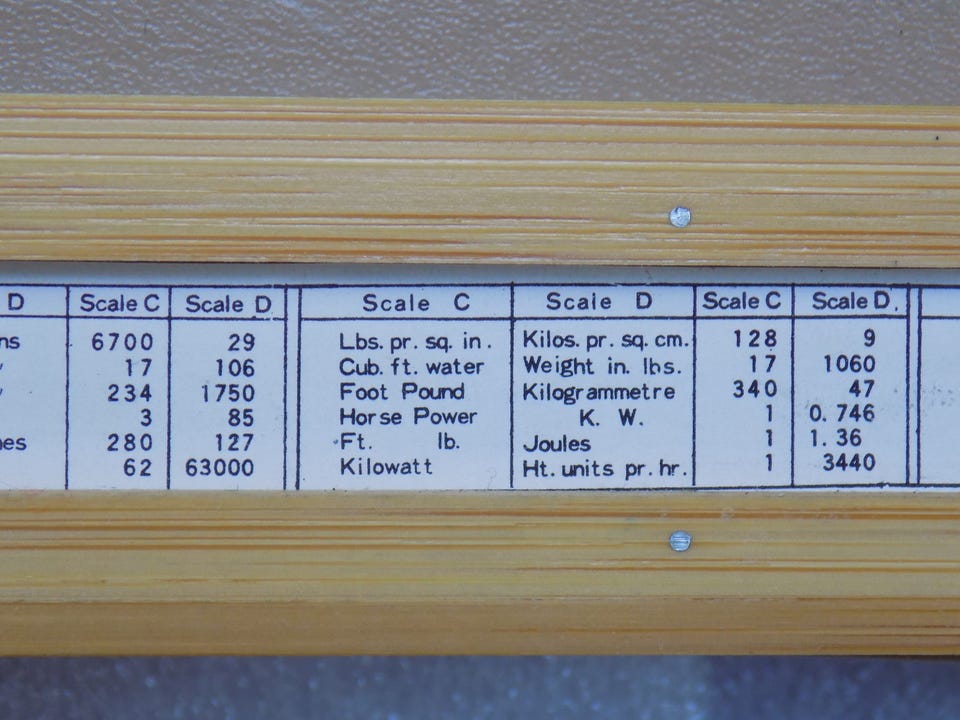 D Scale C Scale D Scale C Scale D Scale C Scale D
ns 6700 29 Lbs. pr. sq. in. Kilos. pr. sq. cm. 128 9
" 17 106 Cub. ft. water Weight in. lbs. 17 1060
" 234 1750 Foot Pound Kilogrammetre 340 47
3 85 Horse Power K. W. 1 0.746
es 280 127 Ft. lb. Joules 1 1.36
62 63000 Kilowatt Ht. units pr. hr. 1 3440